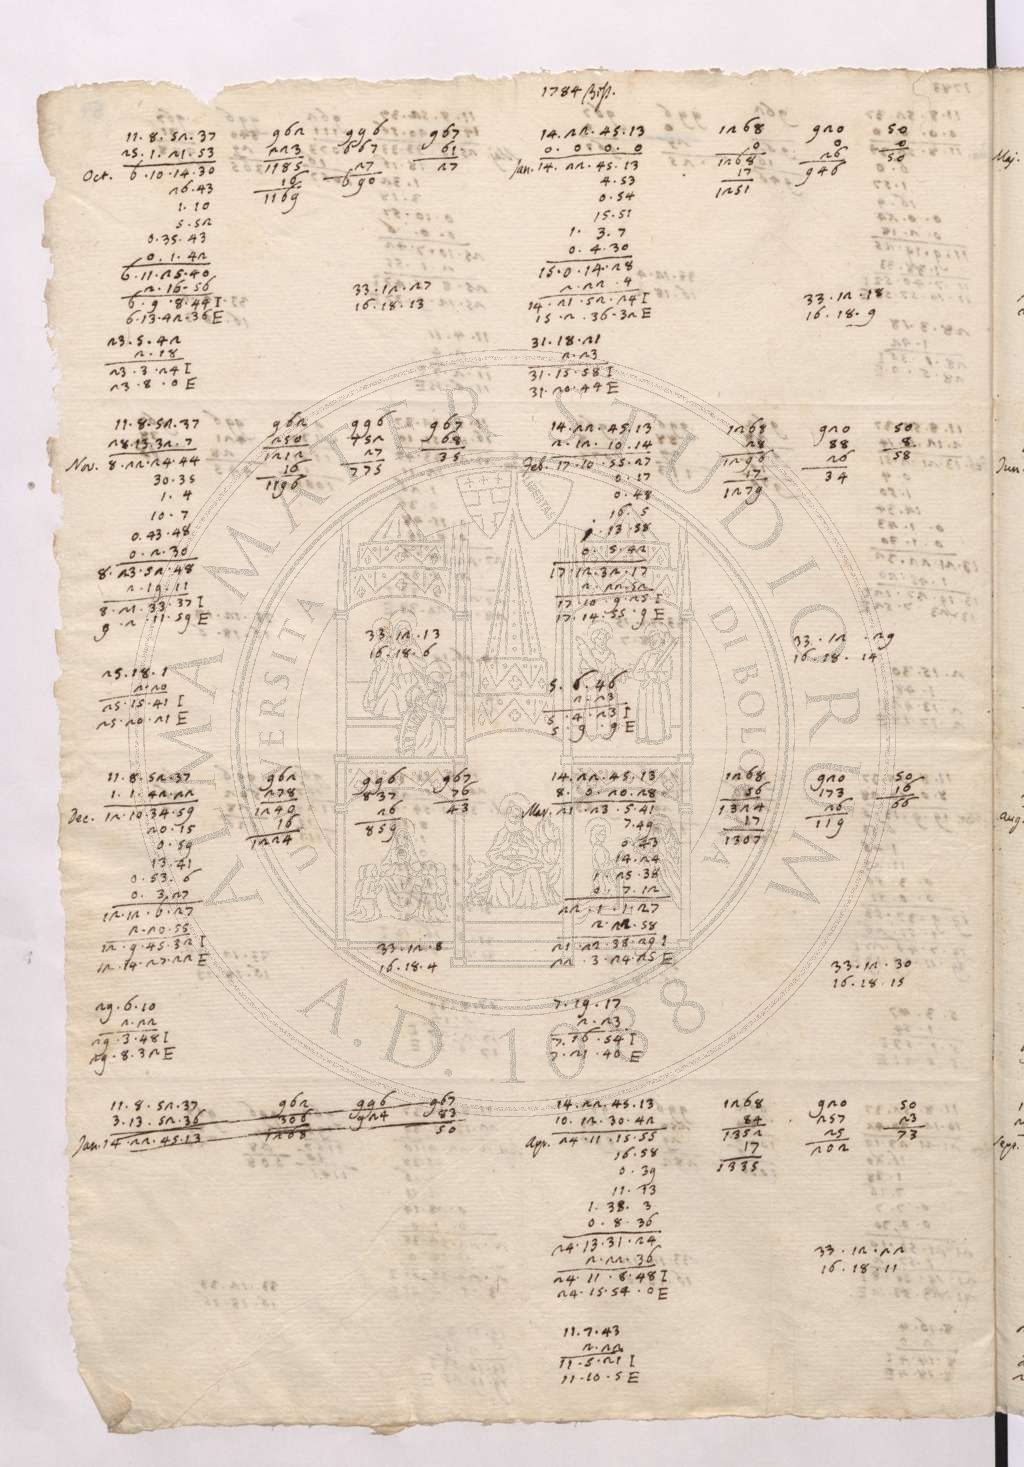 1784 Bist.
11.8.52.37 962 996 967
25.1.21.53 223 667 61
Oct. 6.10.14.30 1185 27 27
26.43 16 690
1.10 1169
5.52
0.35.43
0.1.42
6.11.25.40
2.16.56
6.9.8.44 I
6.13.42.36 E
33.12.27
16.18.13
23.5.42
2.18
23.3.24 I
23.8.0 E
11.8.52.37 962 996 967
28.13.32.7 250 752 68
Nov. 8.22.24.44 1212 27 35
30.35 16 775
1.4 1196
10.7
0.43.48
0.2.30
8.23.52.48
2.19.11
8.21.33.37 I
9.2.11.59 E
33.12.13
16.18.6
25.18.1
2.20
25.15.41 I
25.20.21 E
11.8.52.37 962 996 967
1.1.42.22 278 837 76
Dec. 12.10.34.59 1240 26 43
20.15 16 859
0.59 1224
13.41
0.53.6
0.3.27
12.12.6.27
2.20.55
12.9.45.32 I
12.14.27.22 E
33.12.8
16.18.4
29.6.10
2.22
29.3.48 I
29.8.32 E
11.8.52.37 962 996 967
3.13.52.36 306 924 83
Jan. 14.22.45.13 1268 50
14.22.45.13 1268 920 50
0.0.0.0 0 0 0
Jan. 14.22.45.13 1268 26 50
4.53 17 946
0.54 1251
15.51
1.3.7
0.4.30
15.0.14.28
2.22.4
14.21.52.24 I
15.2.36.32 E
33.12.18
16.18.9
31.18.21
2.23
31.15.58 I
31.20.44 E
14.22.45.13 1268 920 50
2.12.10.14 28 88 8
Feb. 17.10.55.27 1296 26 58
0.17 17 34
0.48 1279
16.5
1.13.58
0.5.42
17.12.32.17
2.22.52
17.10.9.25 I
17.14.55.9 E
33.12.29
16.18.14
5.6.46
2.23
5.4.23 I
5.9.9 E
14.22.45.13 1268 920 50
8.0.20.28 56 173 16
Mar. 21.23.5.41 1324 26 66
7.49 17 119
0.43 1307
14.24
1.25.38
0.7.12
22.1.1.27
2.22.58
21.22.38.29 I
22.3.24.25 E
33.12.30
16.18.15
7.19.17
2.23
7.16.54 I
7.21.40 E
14.22.45.13 1268 920 50
10.12.30.42 84 257 23
Apr. 24.11.15.55 1352 25 73
16.58 17 202
0.39 1335
11.33
1.38.3
0.8.36
24.13.31.24
2.22.36
24.11.8.48 I
24.15.54.0 E
33.12.22
16.18.11
11.7.43
2.22
11.5.21 I
11.10.5 E
Maj.
Jun.
Aug.
Sept.
ALMA MATER STUDIORUM
UNIVERSITÀ DI BOLOGNA
A.D. 1088